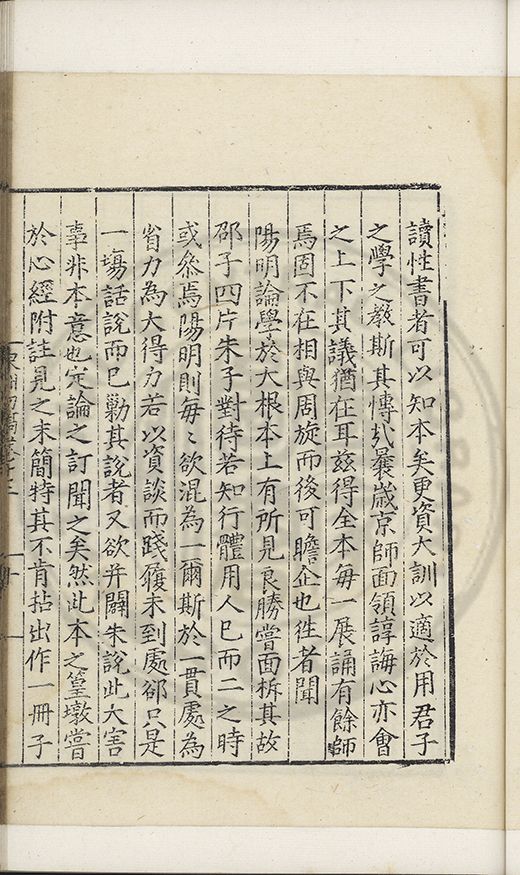 讀性書者可以知本矣更資大訓以適於用君子
之學之教斯其慱㢤曩歳京師面領諄誨心亦會
之上下其議猶在耳兹得全本毎一展誦有餘師
焉固不在相與周旋而後可瞻企也徃者聞
陽明論學於大根本上有所見良勝嘗面析其故
邵子四片朱子對待若知行體用人巳而二之時
或叅焉陽明則毎〻欲混為一爾斯於一貫處為
省力為大得力若以資談而踐履未到處卻只是
一塲話說而巳勦其說者又欲并闢朱說此大害
事非本意也定論之訂聞之矣然此本之篁墩嘗
於心經附註見之末簡特其不肯拈出作一冊子